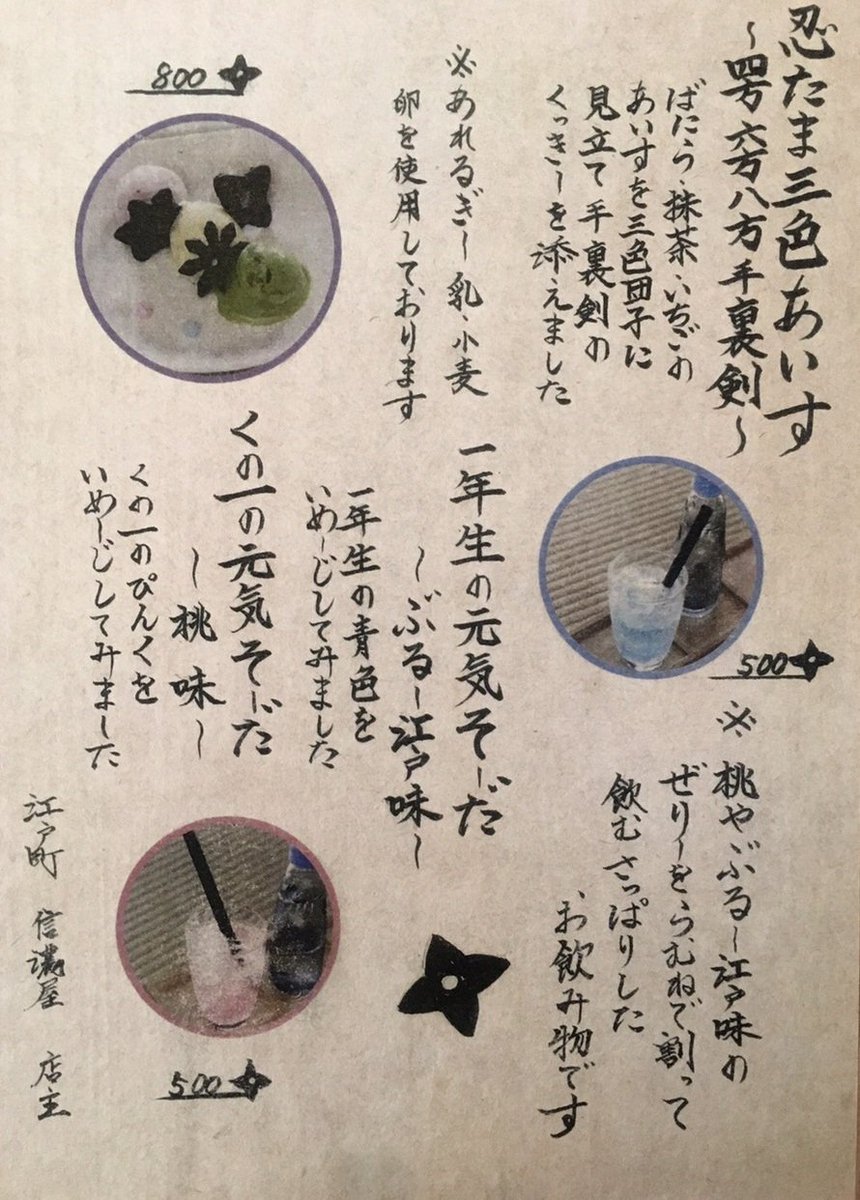 忍たま三色あいす
～四方六方八方手裏剣～
ばにら・抹茶・いちごの
あいすを三色団子に
見立て手裏剣の
くっきーを添えました
※あれるぎー乳、小麦
卵を使用しております
800
一年生の元気そーだ
～ぶるー江戸味～
一年生の青色を
いめーじしてみました
500
くの一の元気そーだ
～桃味～
くの一のぴんくを
いめーじしてみました
500
※桃やぶるー江戸味の
ぜりーをらむねで割って
飲むさっぱりした
お飲み物です
江戸町 信濃屋 店主